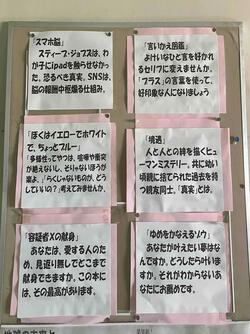 「スマホ脳」
スティーブ・ジョブスは、わが子にipadを触らせなかった。恐るべき真実。SNSは、脳の報酬中枢煽る仕組み。
「言いかえ図鑑」
よけいなひと言を好かれるセリフに変えませんか。「プラス」の言葉を使って、好印象な人になりましょう
「ぼくはイエローでホワイトで、ちょっとブルー」
「多様性ってやつは、喧嘩や衝突が絶えないし、そりゃないほうが楽よ。」「らくじゃないものが、どうしていいの?」考えてみませんか。
「境遇」
人と人との絆を描くヒューマンミステリー。共に幼い頃親に捨てられた過去を持つ親友同士。「真実」とは。
「容疑者Xの献身」
あなたは、愛する人のため、見返り無しでどこまで献身できますか。この本には、その最高があります。
「ゆめをかなえるゾウ」
あなたが叶えたい夢はなんですか。どうしたら叶いますか。それがわからないあなたにお薦めです。